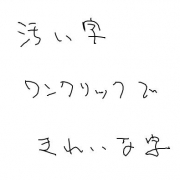 汚い字
ワンクリックで
きれいな字